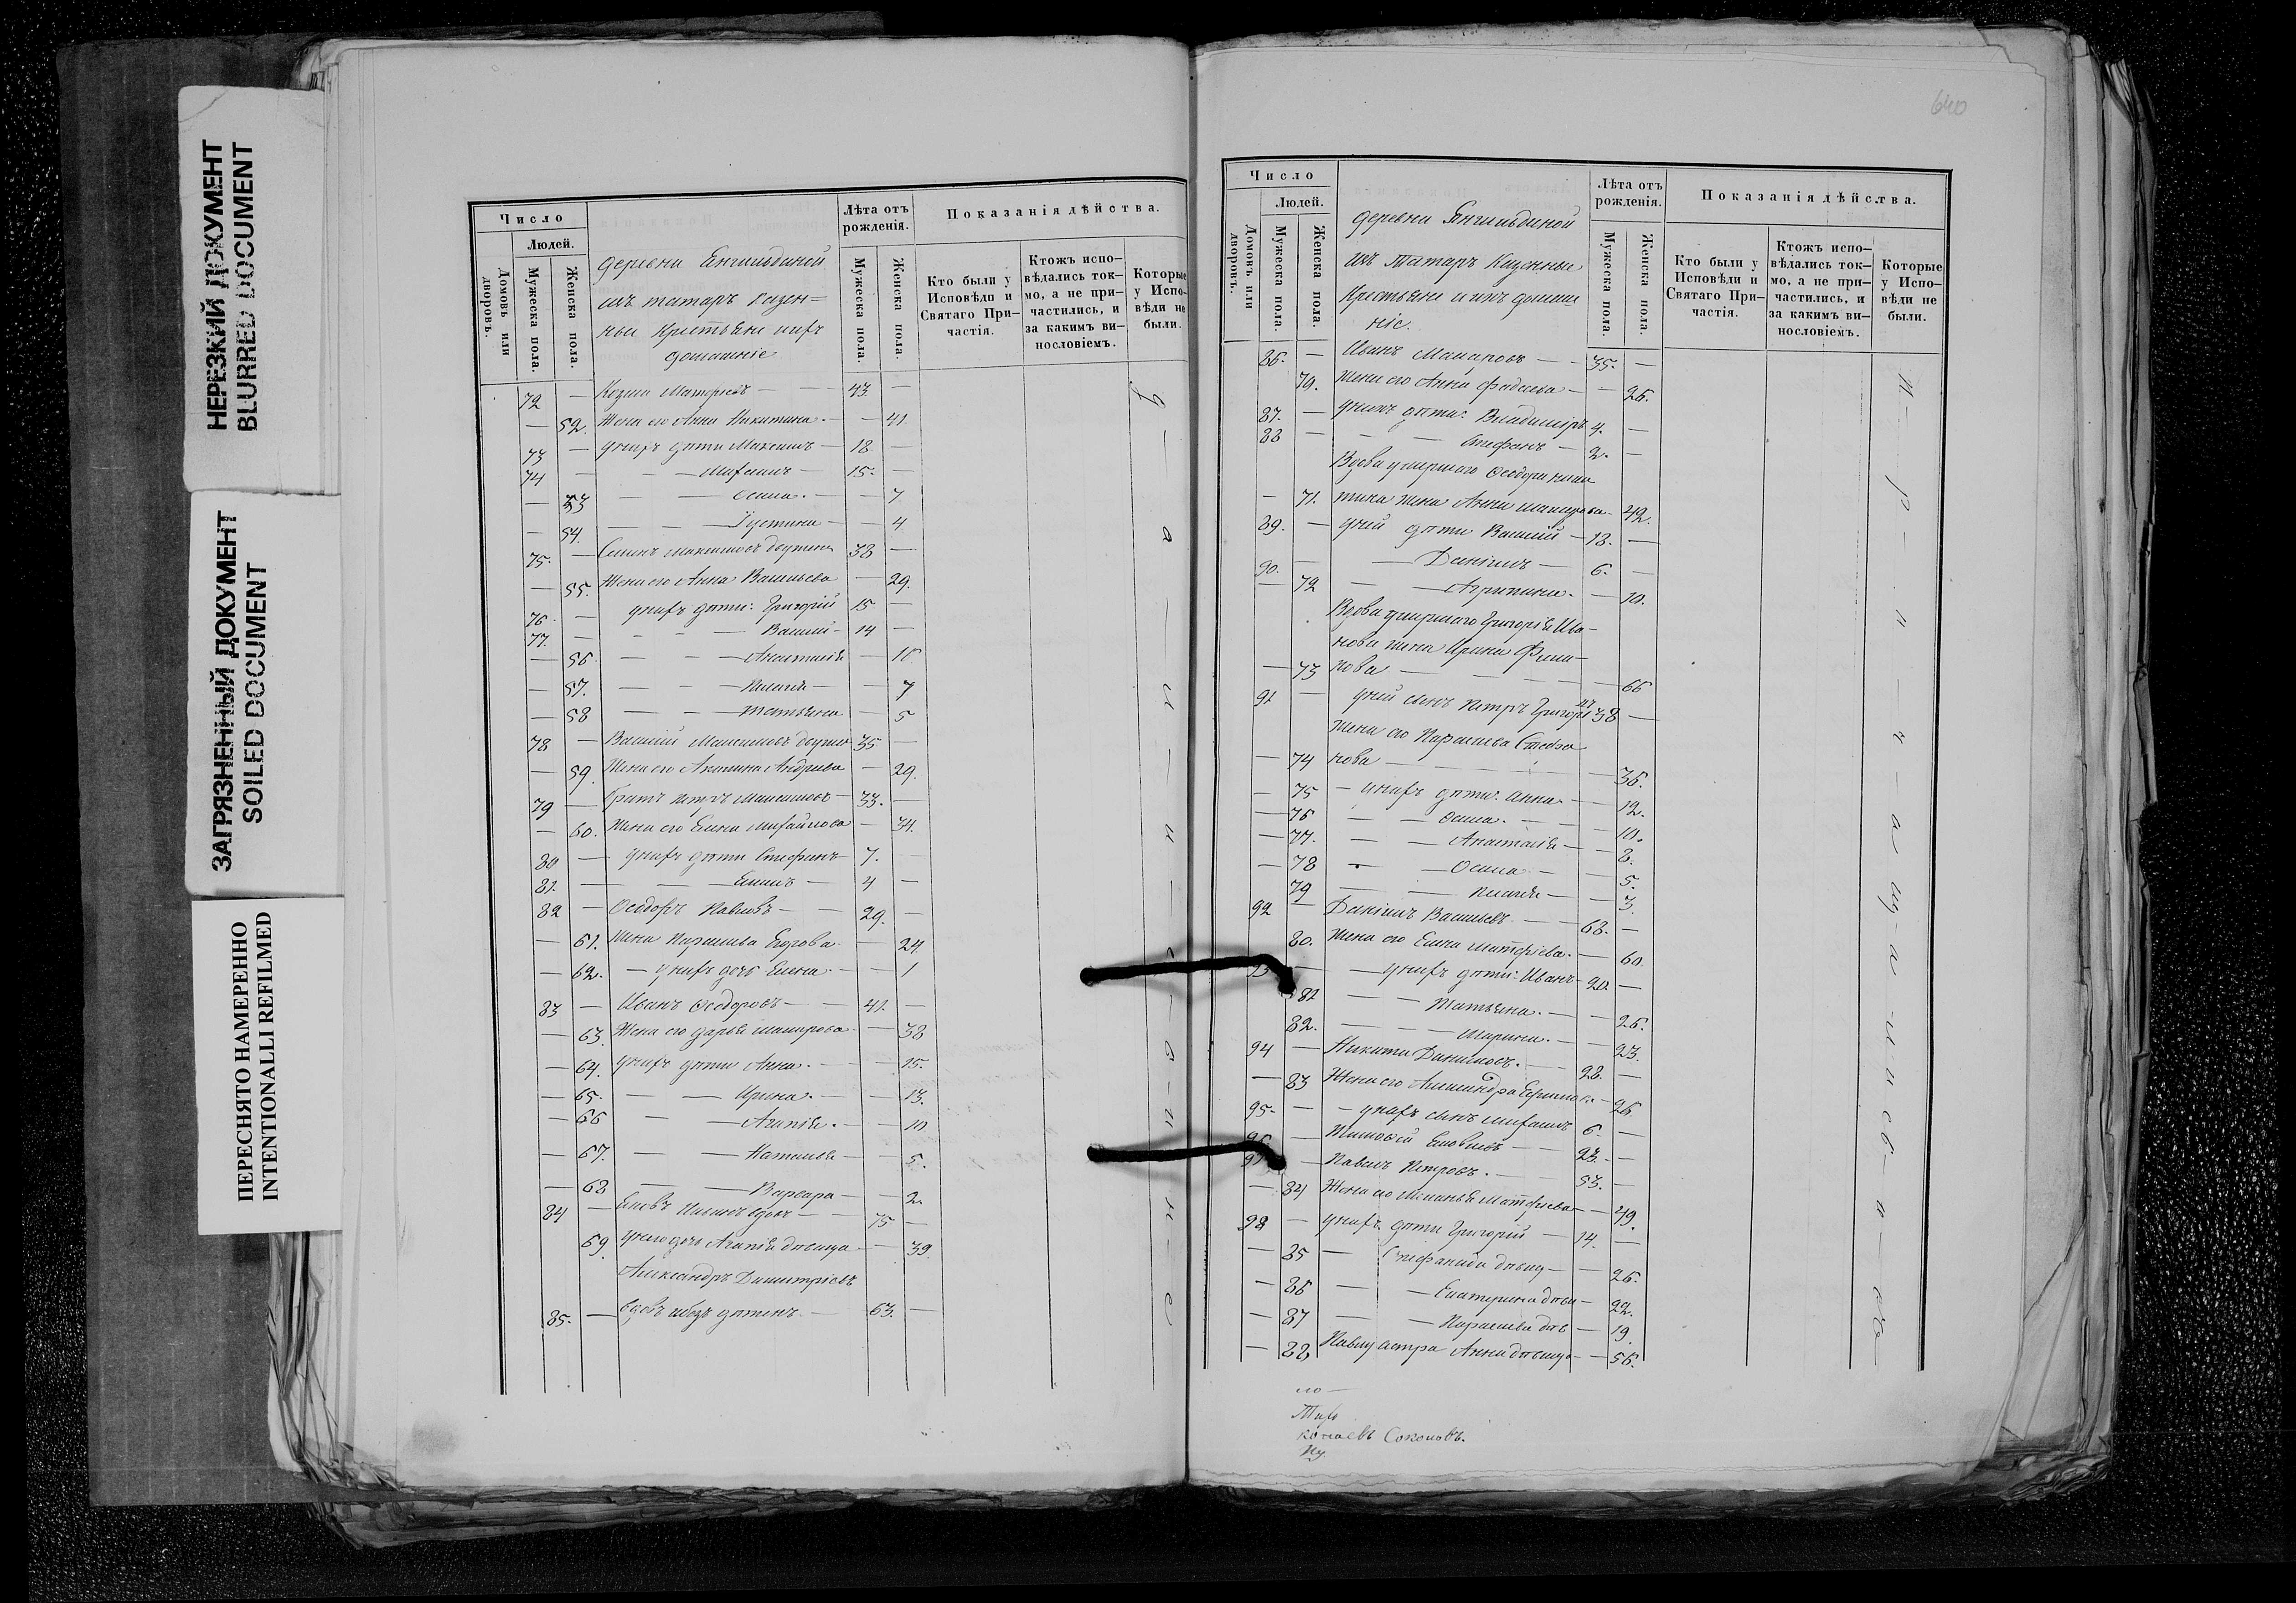 НЕРЕЗКИЙ ДОКУМЕНТ
BLURRED DOCUMENT
ЗАГРЯЗНЕННЫЙ ДОКУМЕНТ
SOILED DOCUMENT
ПЕРЕСНЯТО НАМЕРЕННО
INTENTIONALLI REFILMED
Число
Людей.
Домовъ или дворовъ.
Мужеска пола.
Женска пола.
деревни Енгильдиной
изъ татаръ казен=
ные Крестьяне ихъ
домашніе
Лѣта отъ рожденія.
Мужеска пола.
Женска пола.
Показанія дѣйства.
Кто были у Исповѣди и Святаго Причастія.
Ктожъ исповѣдались токмо, а не причастились, и за какимъ винословіемъ.
Которые у Исповѣди не были.
72 — Козма Матфеевъ — 43. —
— 52. Жена его Анна Никитина — — 41
73 — у нихъ дѣти Максимъ — 18 —
74 — — — Михаилъ — 15. —
— 53 — — Осипа. — — 7
— 54. — — Іустина — — 4
75. — Семенъ Максимовъ 38 —
— 55. Жена его Анна Васильева — 29.
76 — у нихъ дѣти: Григорій 15 —
77. — — — Василій — 14 —
— 56 — — Анастасія —
— 57. — — Пелагія — — 7
— 58 — — Татьяна — 5
78 — Василій Максимовъ 35 —
— 59. Жена его Акилина Андреева — 29.
79 — братъ Петръ Максимовъ — 33. —
— 60. Жена его Елена Михайлова — 34.
80 — у нихъ дѣти Стефанъ — 7. —
81. — — — — 4 —
82 — Ѳеодоръ Павловъ — 29. —
— 61. Жена Параскева Егорова — 24
— 62. — у нихъ дочь Елена — — 1
83 — Иванъ Ѳеодоровъ — 41. —
— 63. Жена его Дарья Макарова — 38
— 64. у нихъ дѣти Анна. — — 15.
— 65. — — Ирина. — — 13.
— 66 — — Агапія. — — 10
— 67. — — Наталья — — 5.
— 68 — — Варвара — — 2.
84 — вдовъ — 75 —
69. у него дочь Агапія дѣвица — 39.
Александръ Димитріевъ
85. — вдовъ дѣтенъ — 63. —
640
Число
Людей.
Домовъ или дворовъ.
Мужеска пола.
Женска пола.
деревни Янгильдиной
изъ татаръ Казенные
Крестьяне и ихъ домаш
ніе.
Лѣта отъ рожденія.
Мужеска пола.
Женска пола.
Показанія дѣйства.
Кто были у Исповѣди и Святаго Причастія.
Ктожъ исповѣдались токмо, а не причастились, и за какимъ винословіемъ.
Которые у Исповѣди не были.
86. — Иванъ Макаровъ — — 35. —
70. Жена его Анна Фадеева — — 26.
87. — у нихъ дѣти: Владиміръ 4. —
88 — — — Стефанъ — 2. —
Вдова умершаго Ѳеодора Ники
— 71. тина жена Анна Макарова — 42.
89. — у ней дѣти Василій — 18. —
90. — — Даніилъ — 6. —
— 72 — — Агрипина. — 10.
Вдова умершаго Григорія Ива—
нова жена Ирина Фили—
— 73 пова — — — 66
91 — у ней сынъ Петръ Григорьевъ 38 —
Жена его Параскева Стефа
— 74 нова — — — 36.
— 75 — у нихъ дѣти: Анна. — 12.
— 76 — — Осипа. — — 10.
— 77. — — Анастасія — 8.
— 78 — — Осипа — — 5.
79 — — Пелагія — — 3.
92 — Даніилъ Васильевъ — 68. —
80. Жена его Елена Матфіева — 60
93 — — у нихъ дѣти: Иванъ — 20. —
81 — — Татьяна. — — 26.
82. — — Марина. — — 23.
94 — Никита Даниловъ. — 28. —
— 83 Жена его Александра Ефимова — 26
95. — — у нихъ сынъ Михаилъ 6. —
96. — Тимофей — 23. —
97 — Павелъ Петровъ. — 53. —
— 84 Жена его Меланья Матфіева — 49.
98 — у нихъ дѣти Григорій — 14. —
— 85 — Стефанида дѣвиц — — 26.
— 86 — — Екатерина дѣви — 22.
— 87 — — Параскева дѣв — 19.
— 88, Павлу сестра Анна дѣвица — 56.
Соколовъ.